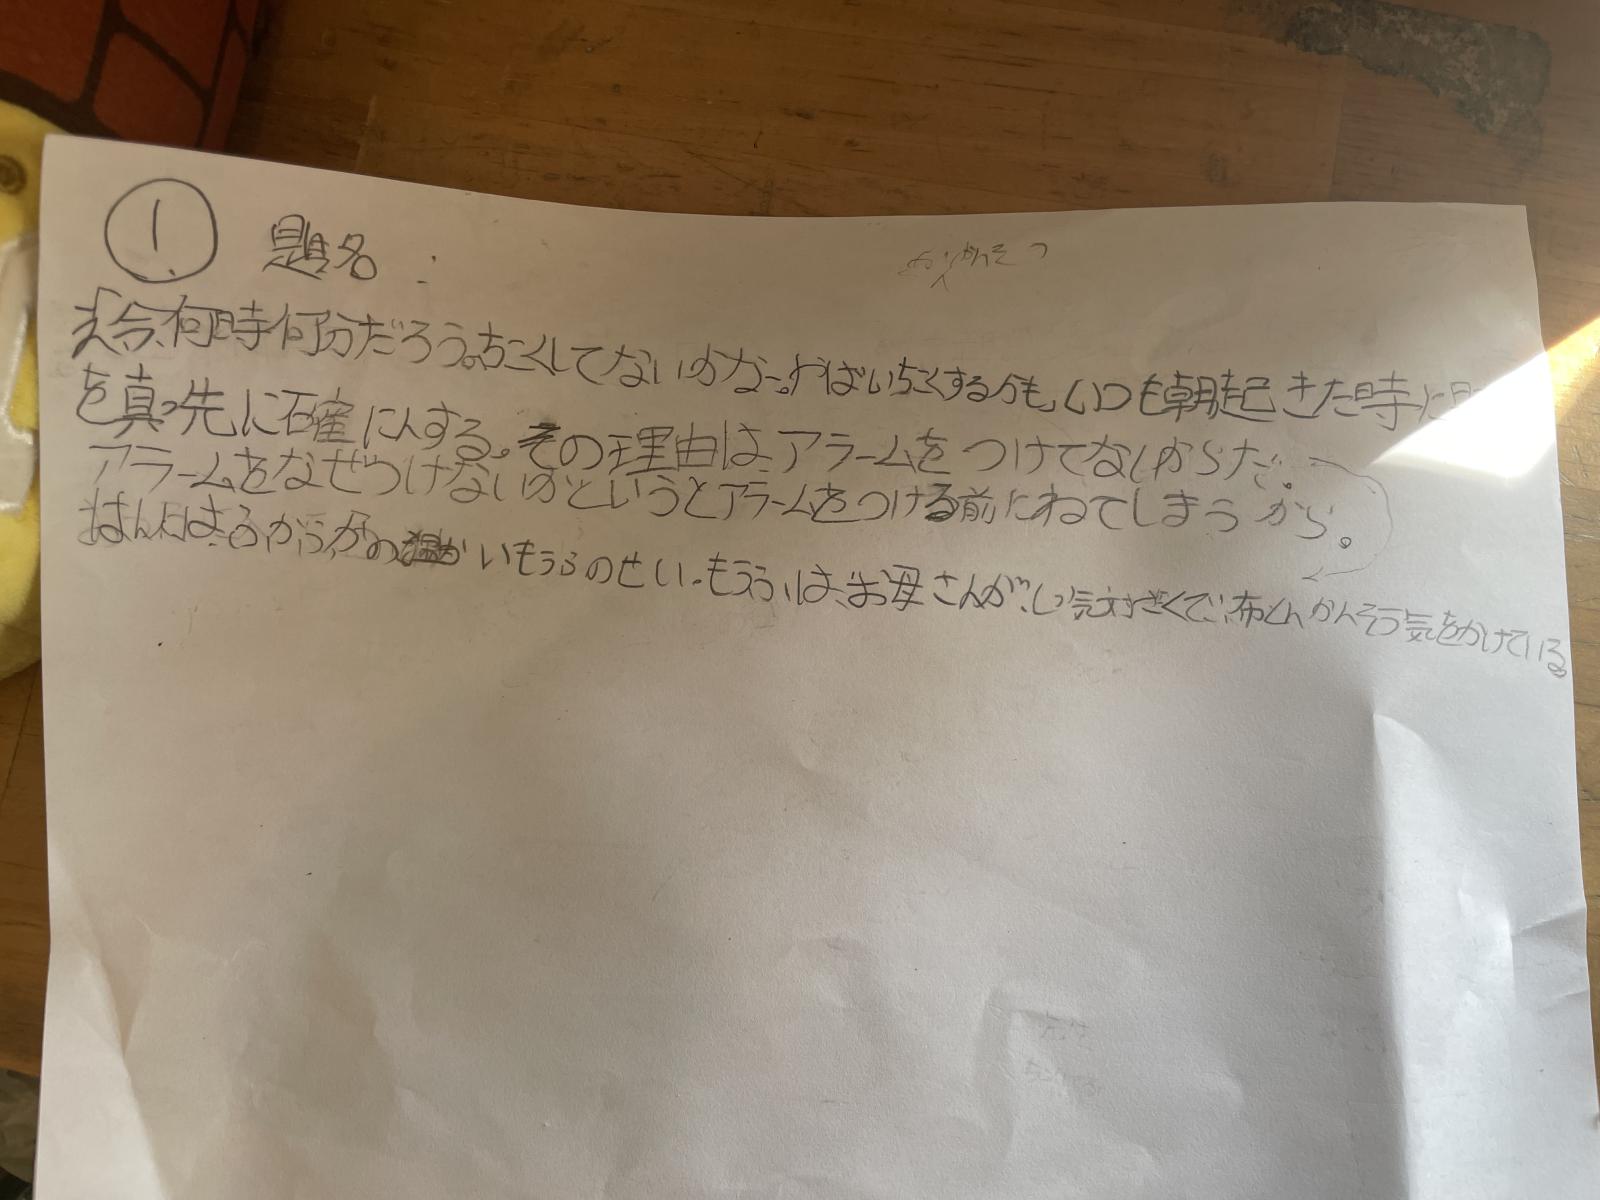 ① 題名:
「今、何時何分だろう。ちこくしてないかな。やばいちこくするかも。いつも朝起きた時に
を真っ先に確にんする。その理由は、アラームをつけてないからだ。
アラームをなぜつけないかというとアラームをつける前にねてしまうから。
はんにんは、ふかふかの温かいもうふのせい。もうふは、お母さんが、しっ気対さくで、布とんかんそう気をかけている。